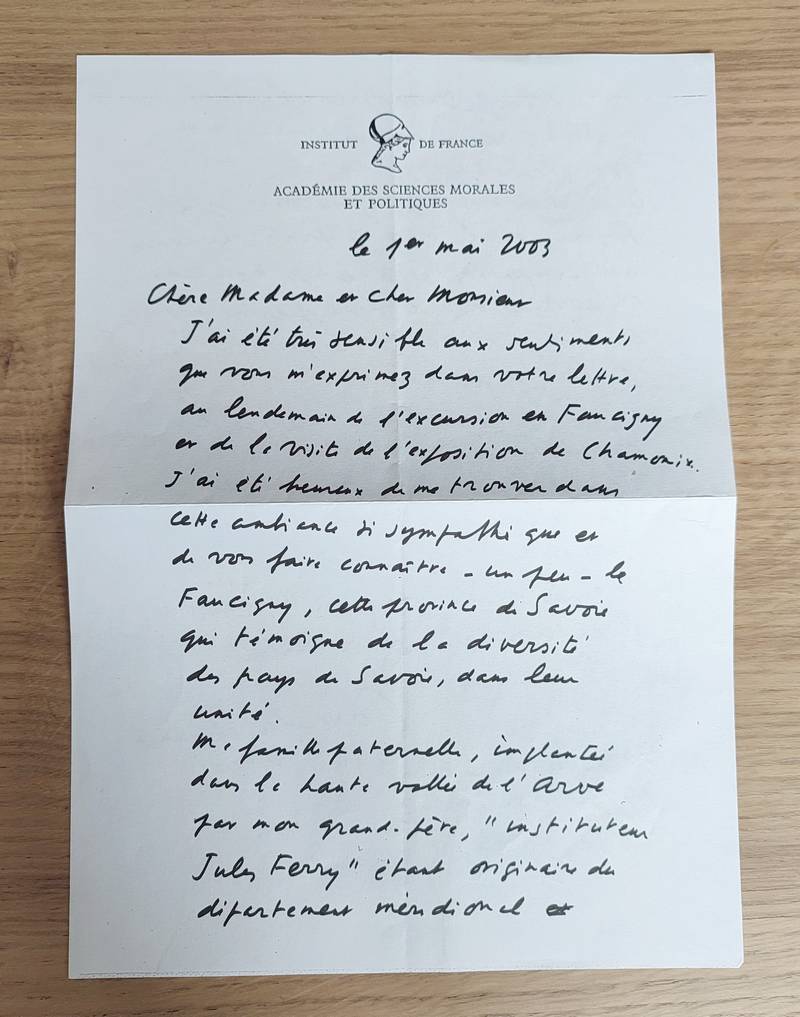 INSTITUT DE FRANCE
ACADÉMIE DES SCIENCES MORALES
ET POLITIQUES
le 1er mai 2003
Chère Madame et cher Monsieur
J'ai été très sensible aux sentiments
que vous m'exprimez dans votre lettre,
au lendemain de l'excursion en Faucigny
et de la visite de l'exposition de Chamonix.
J'ai été heureux de me trouver dans
cette ambiance si sympathique et
de vous faire connaître - un peu - le
Faucigny, cette province de Savoie
qui témoigne de la diversité
des pays de Savoie, dans leur
unité.
Ma famille paternelle, implantée
dans la haute vallée de l'Arve
par mon grand-père, "instituteur
Jules Ferry" étant originaire du
département méridional